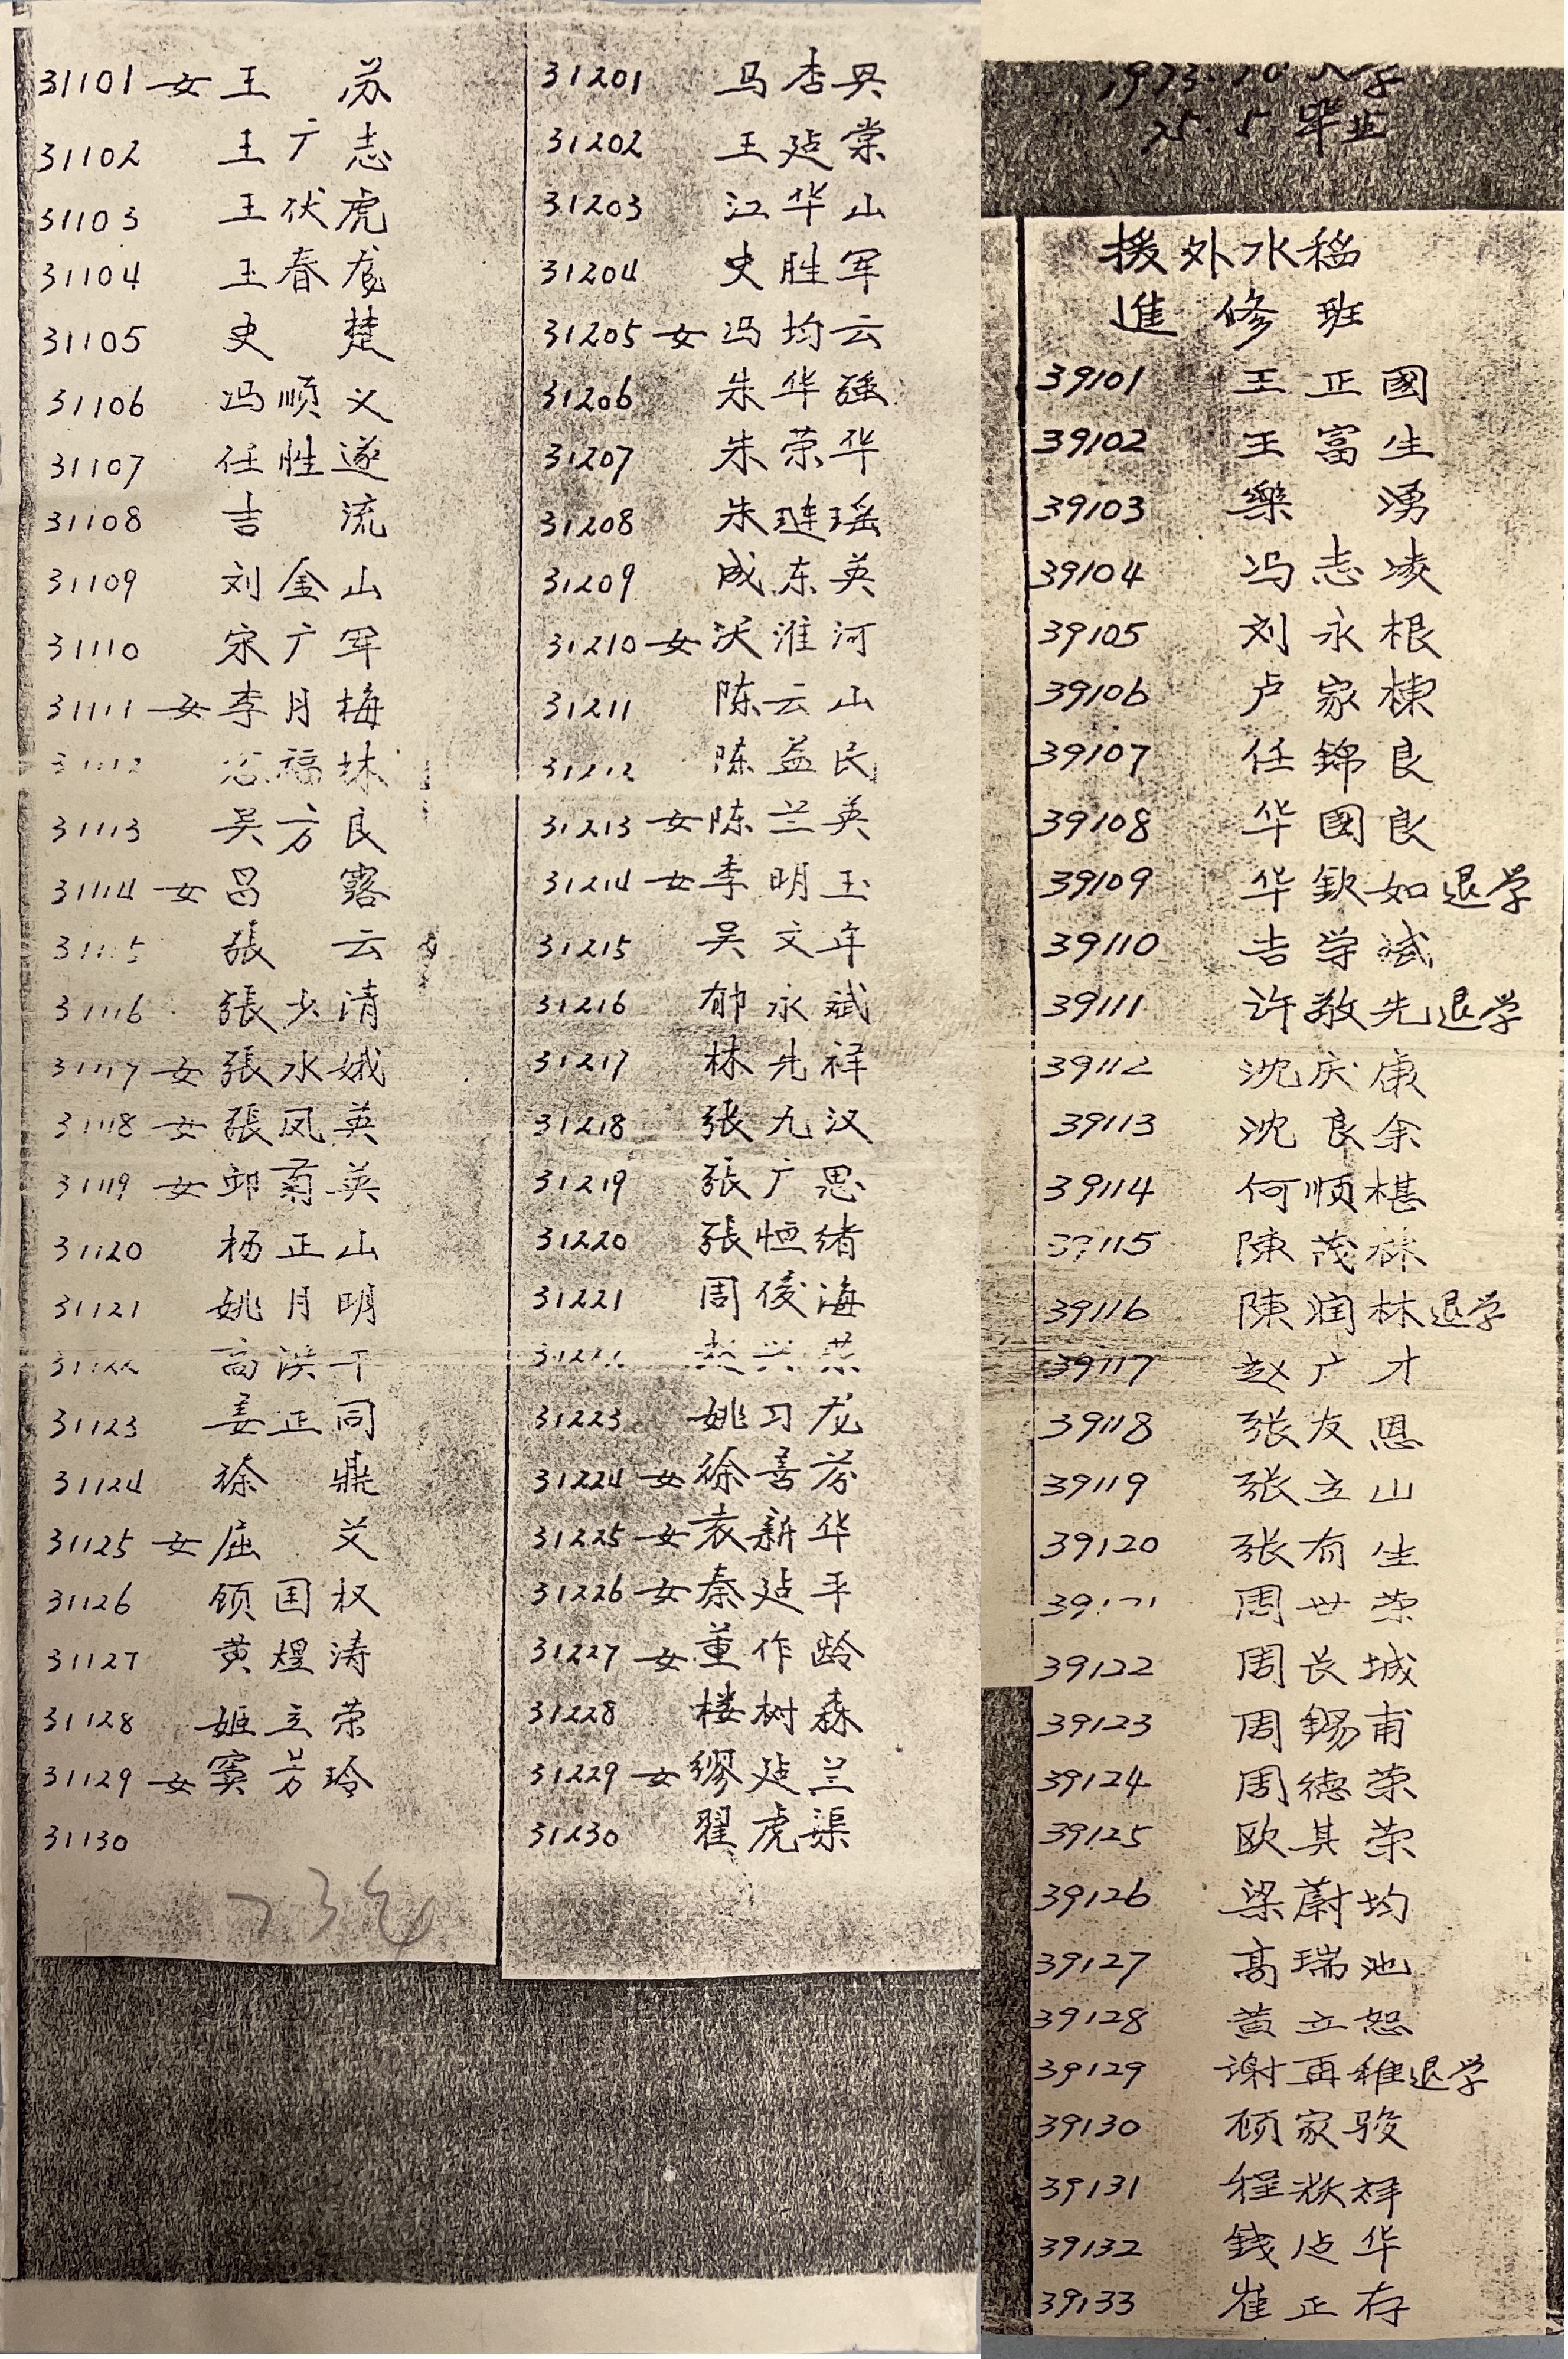 31101 女 王 苏
31102 王广志
31103 王伏虎
31104 王春龙
31105 史 楚
31106 冯顺义
31107 任性遂
31108 吉 流
31109 刘金山
31110 宋广军
31111 女 李月梅
31112 福林
31113 吴方良
31114 女 吕 露
31115 張 云
31116 張少清
31117 女 張水娥
31118 女 張凤英
31119 女 菊英
31120 杨正山
31121 姚月明
31122 高洪干
31123 姜正同
31124 徐 鼎
31125 女 屈 艾
31126 顾国权
31127 黄煜涛
31128 姬立荣
31129 女 窦芳玲
31130
31201 马杏
31202 王廷棠
31203 江华山
31204 史胜军
31205 女 冯均云
31206 朱华强
31207 朱荣华
31208 朱琏瑶
31209 成东英
31210 女 沃淮河
31211 陈云山
31212 陈益民
31213 女 陈兰英
31214 女 李明玉
31215 吴文年
31216 郁永斌
31217 林先祥
31218 张九汉
31219 張广恩
31220 張恒绪
31221 周俊海
31222 赵兴荣
31223 姚习龙
31224 女 徐善芬
31225 女 袁新华
31226 女 秦廷平
31227 女 董作龄
31228 楼树森
31229 女 缪廷兰
31230 翟虎渠
23名
1973.10.入学
75.5 毕业
援外水稻
進修班
39101 王正國
39102 王富生
39103 樂 湧
39104 冯志凌
39105 刘永根
39106 卢家棟
39107 任錦良
39108 华國良
39109 华欽如退学
39110 吉学斌
39111 许敬先退学
39112 沈庆康
39113 沈良余
39114 何顺椹
39115 陳茂林
39116 陳润林退学
39117 赵广才
39118 张友恩
39119 张立山
39120 张有生
39121 周世荣
39122 周长城
39123 周錫甫
39124 周德荣
39125 欧其荣
39126 梁蔚均
39127 高瑞池
39128 黄立恕
39129 谢再稚退学
39130 顾家骏
39131 程祥
39132 錢华
39133 崔正存